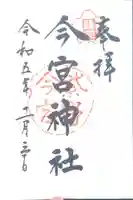 奉拝
今宮神社
令和五年十二月三日